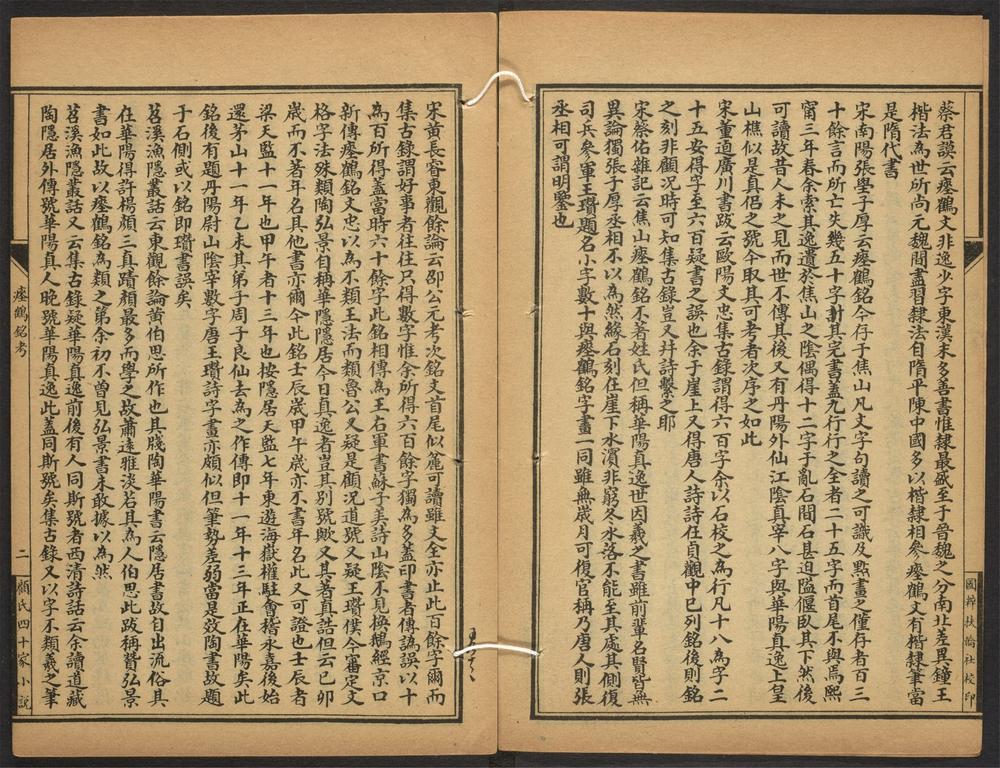 蔡君謨云瘞鶴文非逸少字東漢末多善書惟隸最盛至于晉魏之分南北差異鐘王
楷法為世所尚元魏間盡習隸法自隋平陳中國多以楷隸相參瘞鶴文有楷隸筆當
是隋代書
宋南陽張壆子厚云瘞鶴銘今存于焦山凡文字句讀之可識及點畫之僅存者百三
十餘言而所亡失幾五十字計其完書蓋九行行之全者二十五字而首尾不與焉熙
甯三年春余索其逸遺於焦山之陰偶得十二字于亂石間石甚迫隘偃臥其下然後
可讀故昔人未之見而世不傳其後又有丹陽外仙江陰真宰八字與華陽真逸上皇
山樵似是真侶之號今取其可考者次序之如此
宋董逌廣川書跋云歐陽文忠集古錄謂得六百字余以石校之為行凡十八為字二
十五安得字至六百疑書之誤也余于崖上又得唐人詩詩任貞觀中已列銘後則銘
之刻非顧况時可知集古錄豈又幷詩繫之耶
宋蔡佑雜記云焦山瘞鶴銘不著姓氏但稱華陽真逸世因羲之書雖前輩名賢皆無
異論獨張子厚丞相不以為然緣石刻任崖下水濱非窮冬水落不能至其處其側復
司兵參軍王瓚題名小字數十與瘞鶴銘字畫一同雖無歲月可復官稱乃唐人則張
丞相可謂明鑒也
國粹扶輪社校印
宋黃長睿東觀餘論云邵公元考次銘文首尾似麄可讀雖文全亦止此百餘字爾而
集古錄謂好事者往往只得數字惟余所得六百餘字獨為多蓋印書者傳譌誤以十
為百所得蓋當時六十餘字此銘相傳為王右軍書蘇子美詩山陰不見換鵝經京口
新傳瘞鶴銘文忠以為不類王法而類魯公又疑是顧况道號又疑王瓚僕今審定文
格字法殊類陶弘景自稱華隱隱居今日真逸者豈其别號歟又其著真誥但云己卯
歲而不著年名其他書亦爾今此銘壬辰歲甲午歲亦不書年名此又可證也壬辰者
梁天監十一年也甲午者十三年也按隱居天監七年東遊海嶽權駐會稽永嘉後始
還茅山十一年乙未其弟子周子良仙去為之作傳即十一年十三年正在華陽矣此
銘後有題丹陽尉山陰宰數字唐王瓚詩字畫亦頗似但筆勢差弱當是效陶書故題
于石側或以銘即瓚書誤矣
苕溪漁隱叢話云東觀餘論黃伯思所作也其牋陶華陽書云隱居書故自出流俗其
任華陽得許楊顏三真蹟顏最多而學之故蕭遠雅淡若其為人伯思此跋稱贊弘景
書如此故以瘞鶴銘為類之第余初不曾見弘景書未敢據以為然
苕溪漁隱叢話又云集古錄疑華陽真逸前後有人同斯號者西清詩話云余讀道藏
陶隱居外傳號華陽真人晚號華陽真逸此蓋同斯號矣集古錄又以字不類羲之筆
瘞鶴銘考
二
顧氏四十家小說